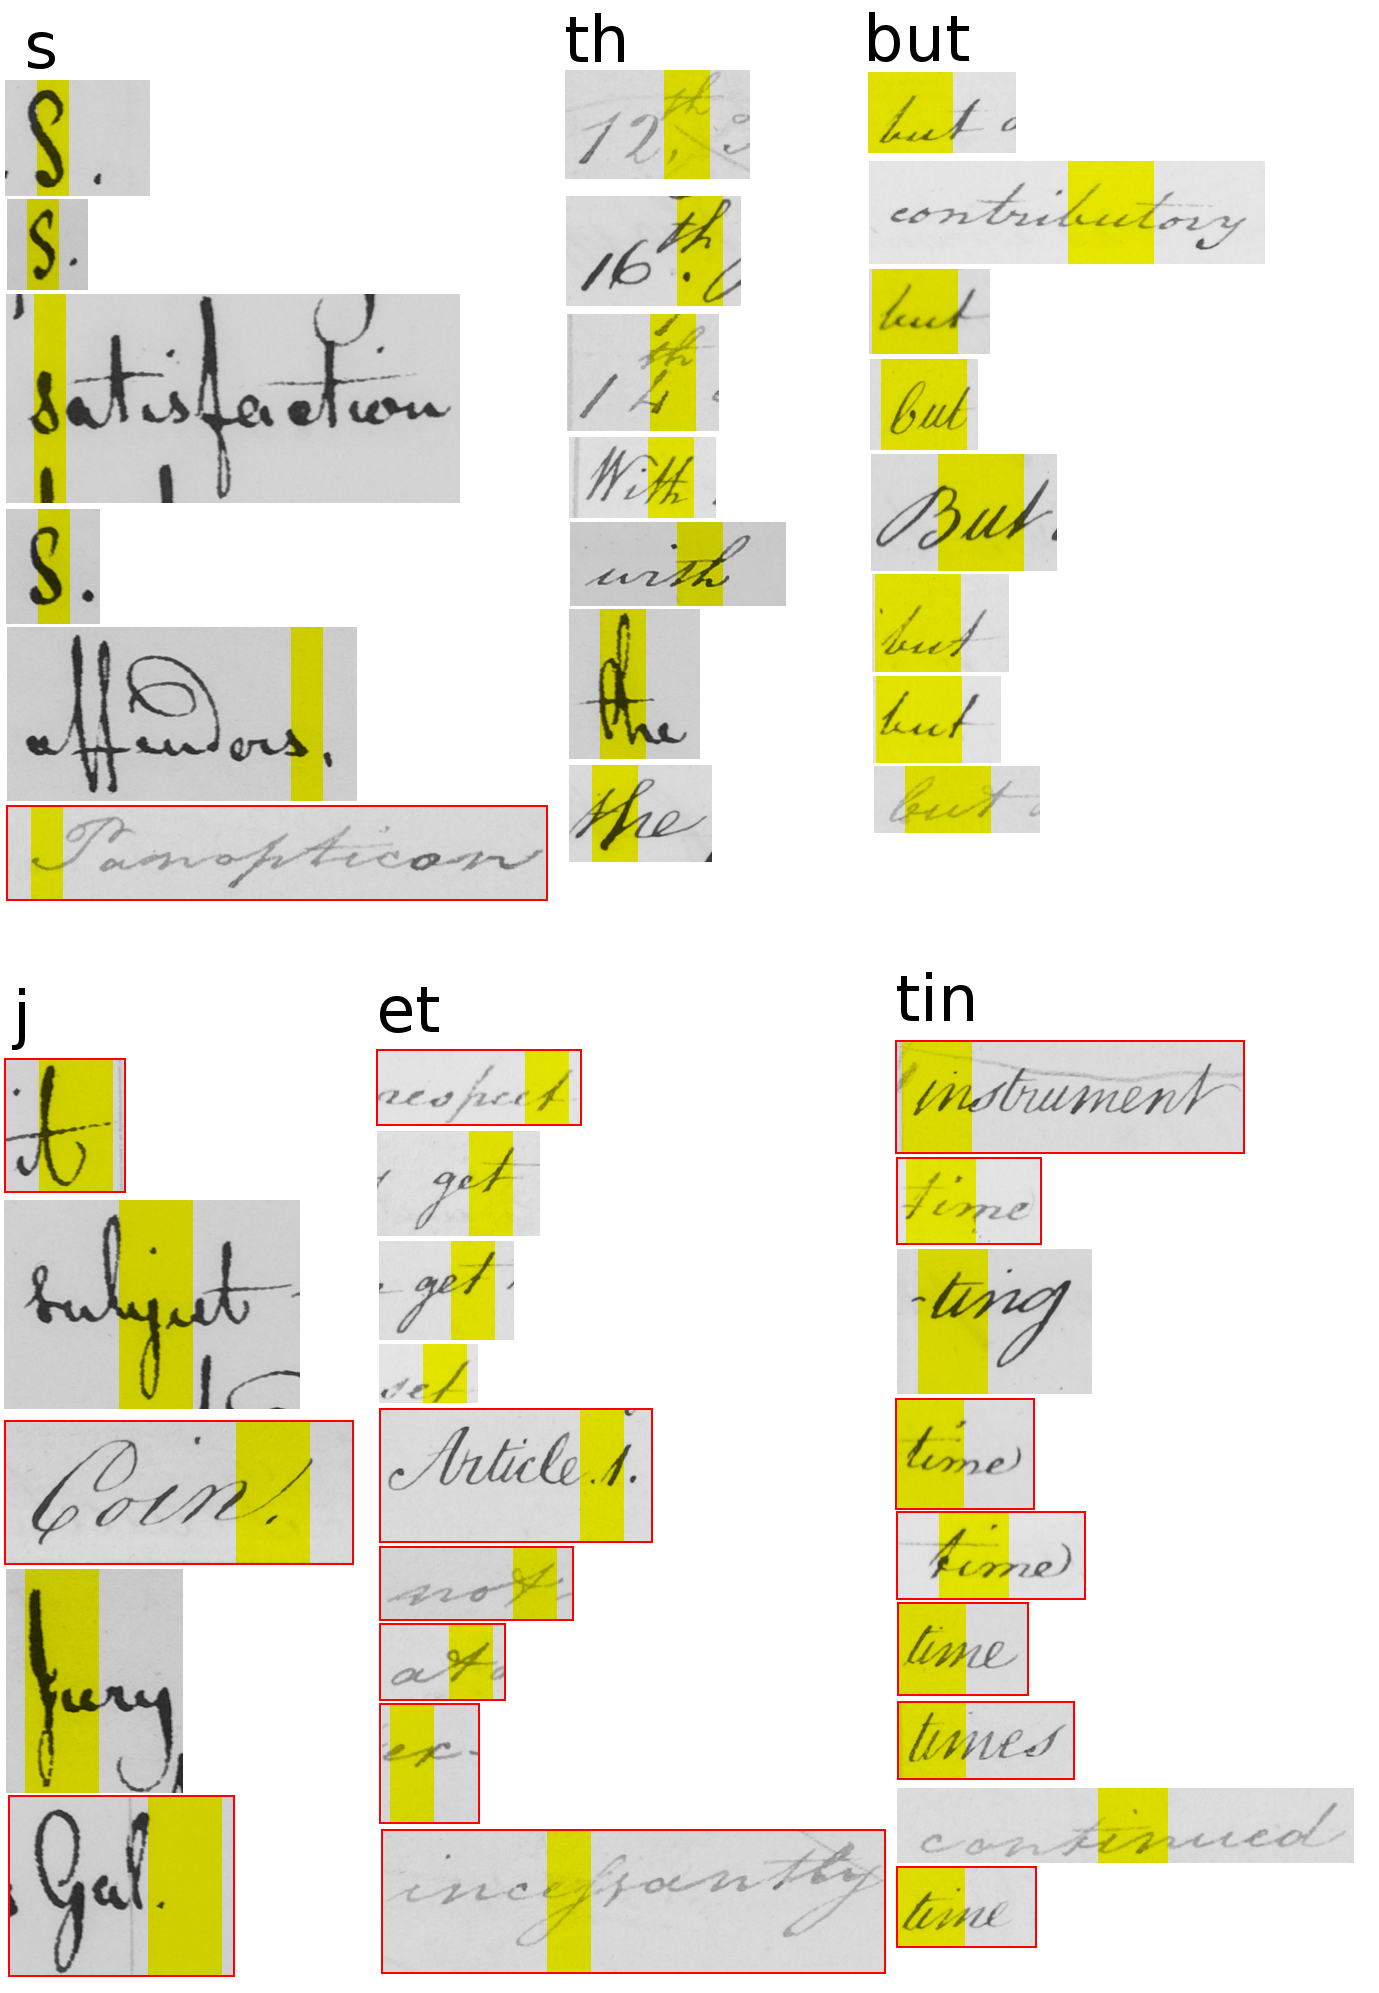 s
S.
S.
satisfaction
S.
affenders.
Panopticon
th
12th
16th
14th
With
with
the
the
but
but
contributory
but
but
But
but
but
but
j
it
subject
Coin.
Jury
Gal.
et
respect
get
get
set
Article 1.
not
at
ex-
incessantly
tin
instrument
time
-ting
time
time
time
times
continued
time